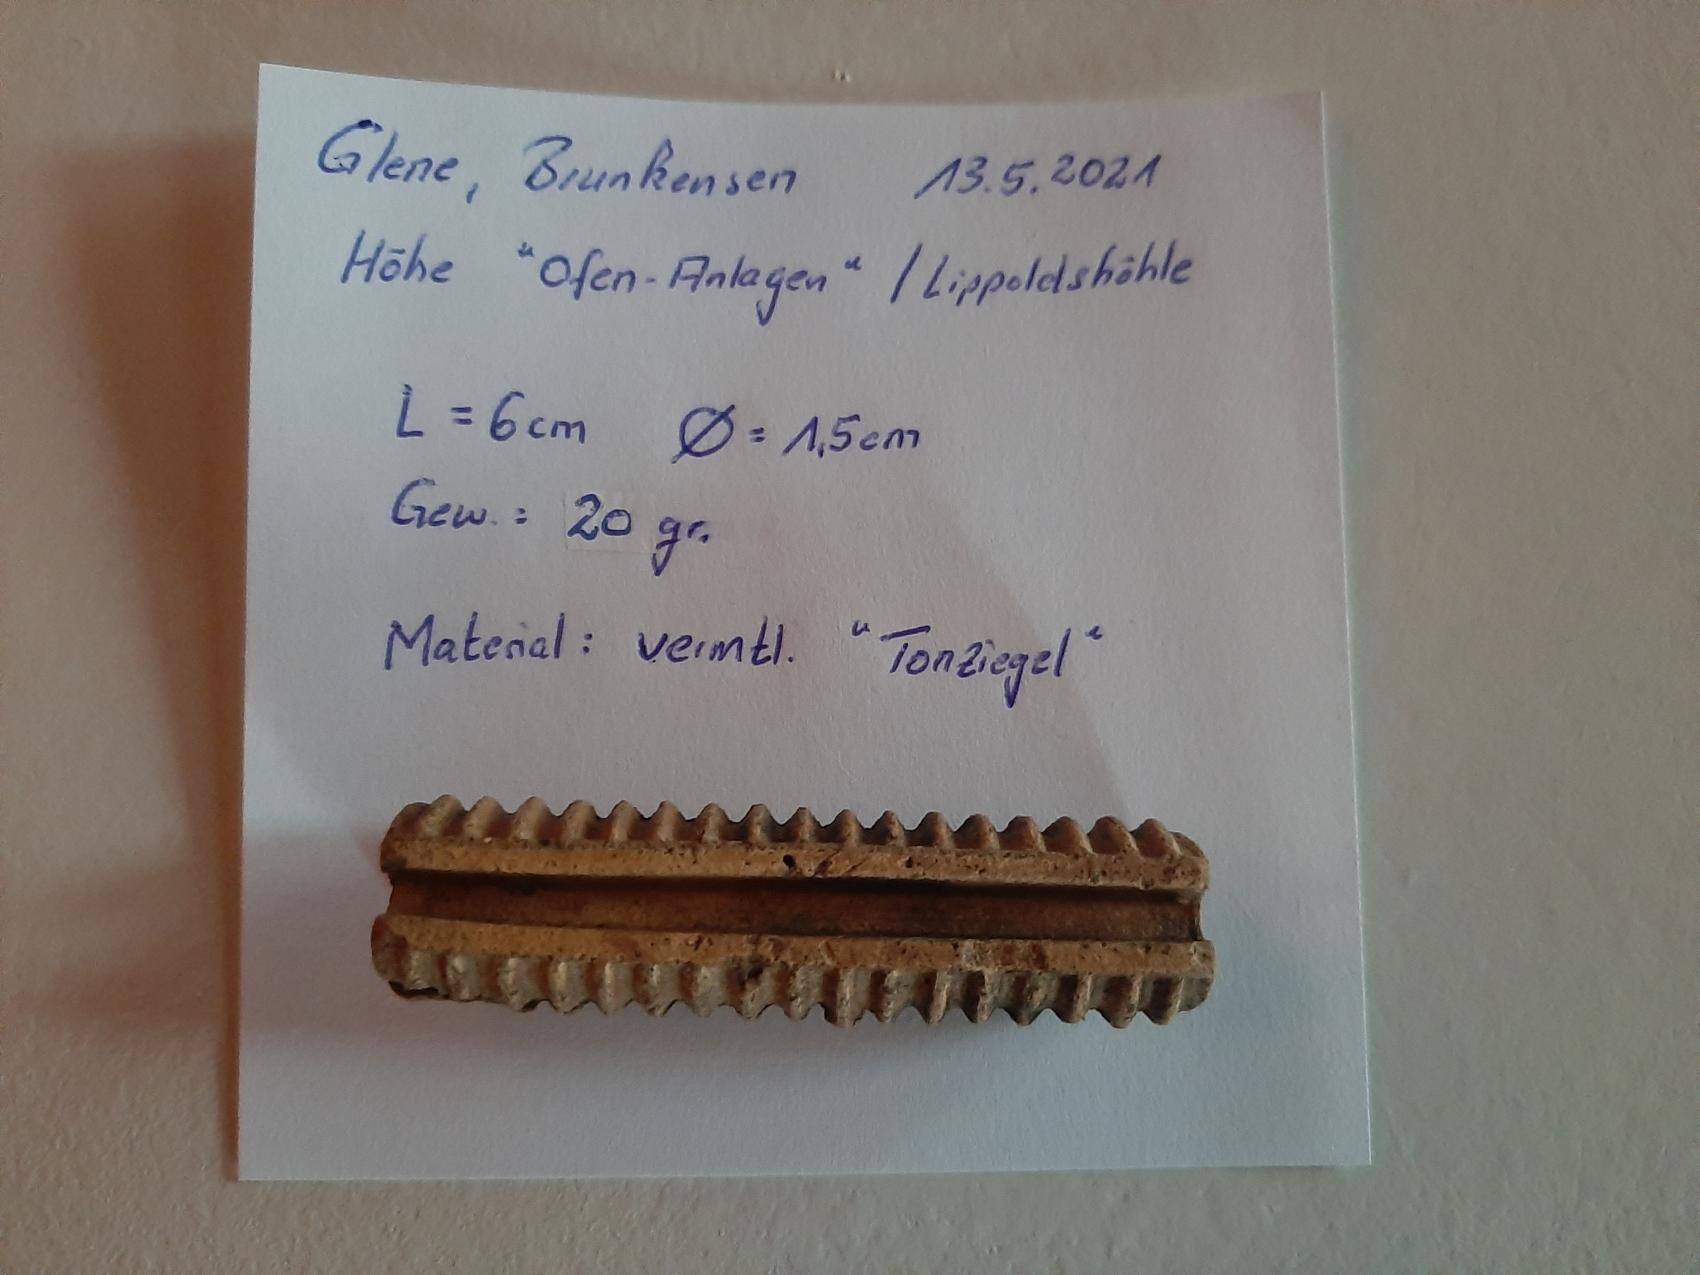 Glene, Brunkensen 13.5.2021
Höhe "Ofen-Anlagen" / Lippoldshöhle
L = 6cm Ø = 1,5cm
Gew. : 20 gr.
Material: vermtl. "Tonziegel"